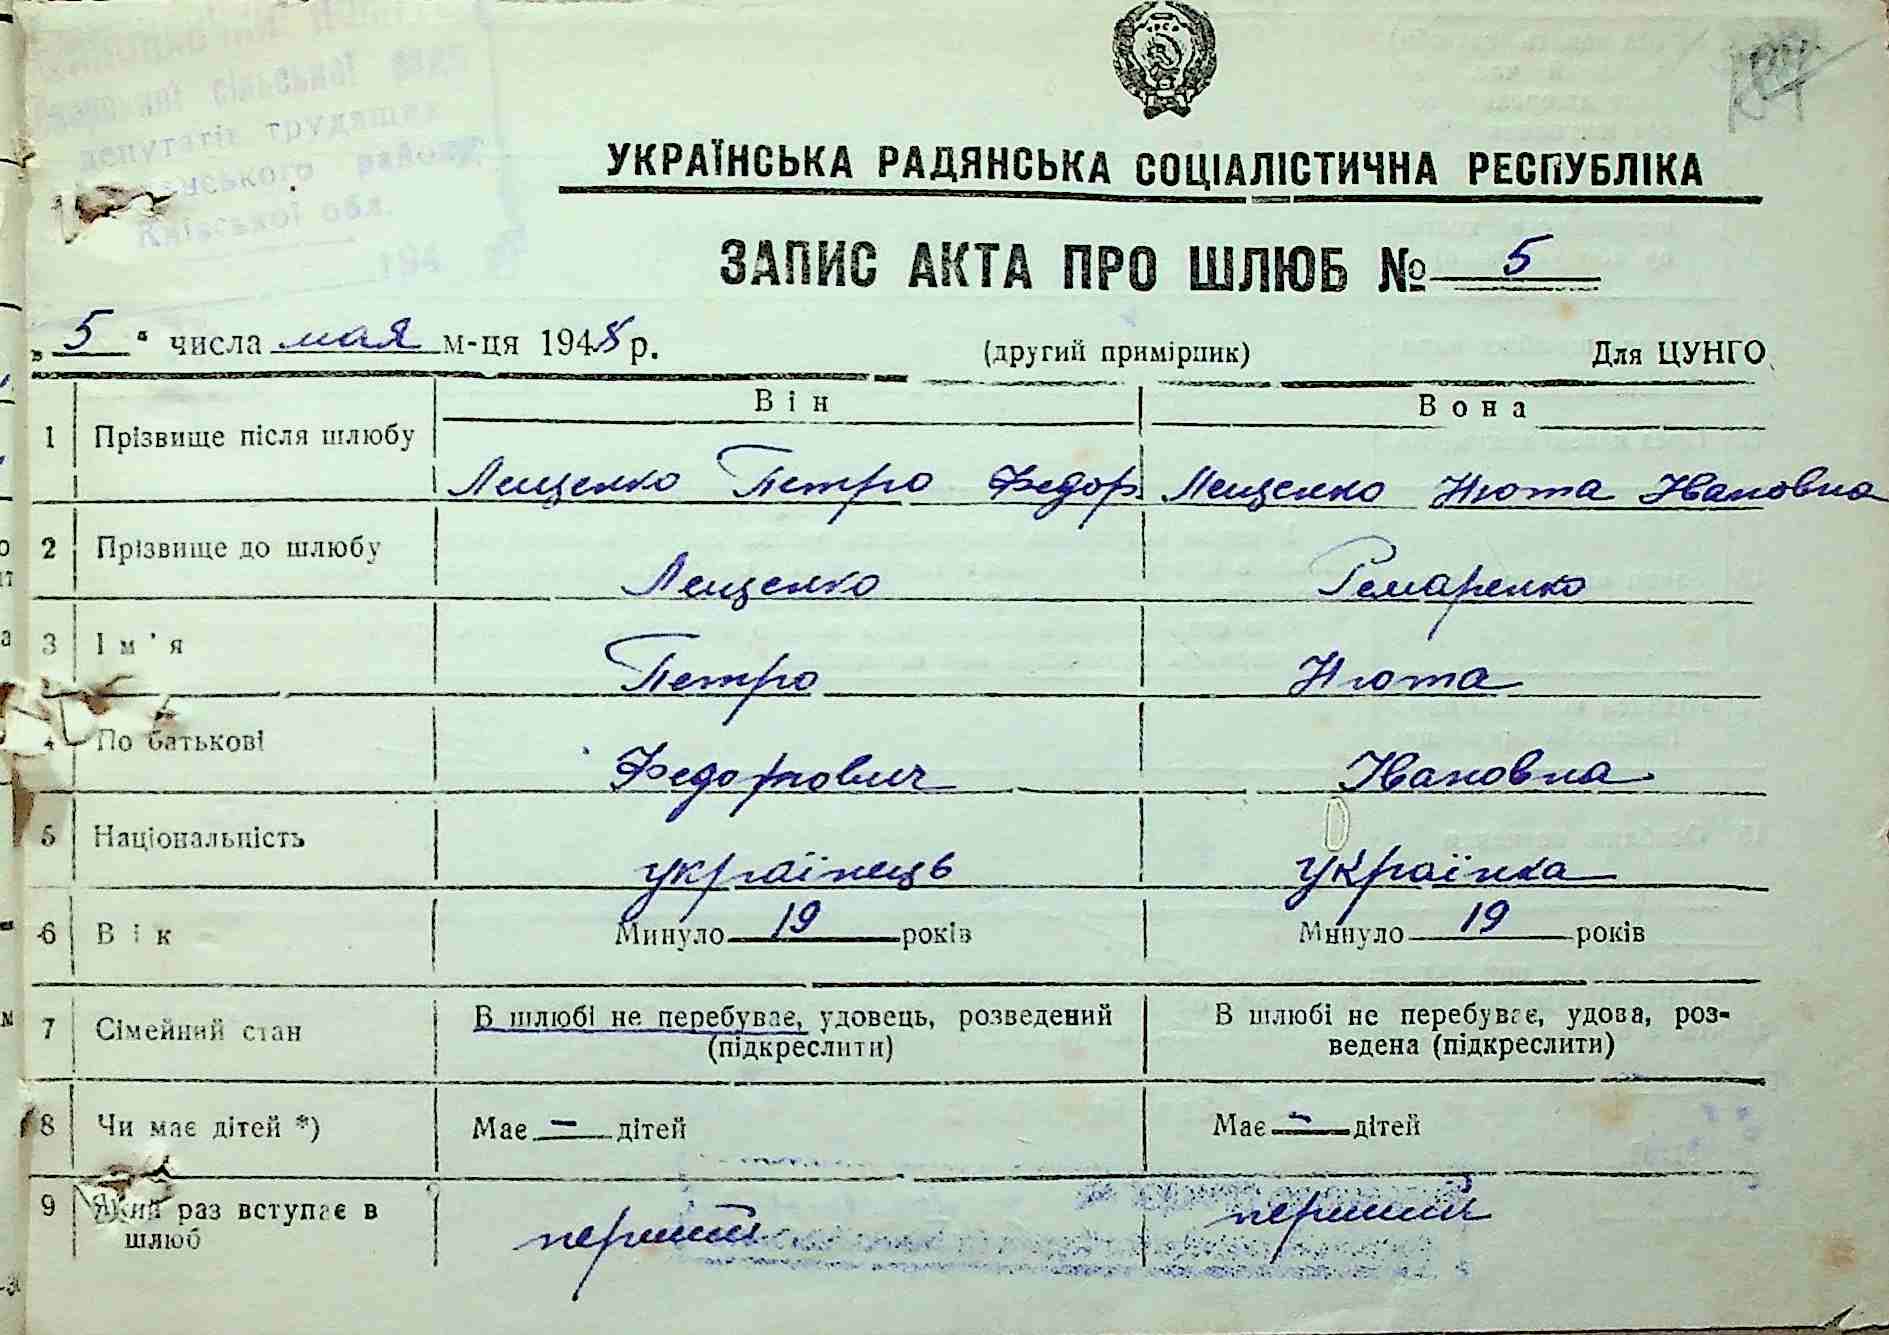 сільської ради
депутатів трудящих
району
Київської обл.
194
УКРАЇНСЬКА РАДЯНСЬКА СОЦІАЛІСТИЧНА РЕСПУБЛІКА
ЗАПИС АКТА ПРО ШЛЮБ № 5
„5“ числа мая м-ця 1948 р. (другий примірник) Для ЦУНГО
Він Вона
1 Прізвище після шлюбу Лещенко Петро Федор Лещенко Нюта Ивановна
2 Прізвище до шлюбу Лещенко Гемаренко
3 Ім'я Петро Нюта
4 По батькові Федорович Ивановна
5 Національність українець українка
6 Вік Минуло 19 років Минуло 19 років
7 Сімейний стан В шлюбі не перебуває, удовець, розведений В шлюбі не перебуває, удова, роз-
(підкреслити) ведена (підкреслити)
8 Чи має дітей *) Має – дітей Має – дітей
9 Який раз вступає в перший перший
шлюб